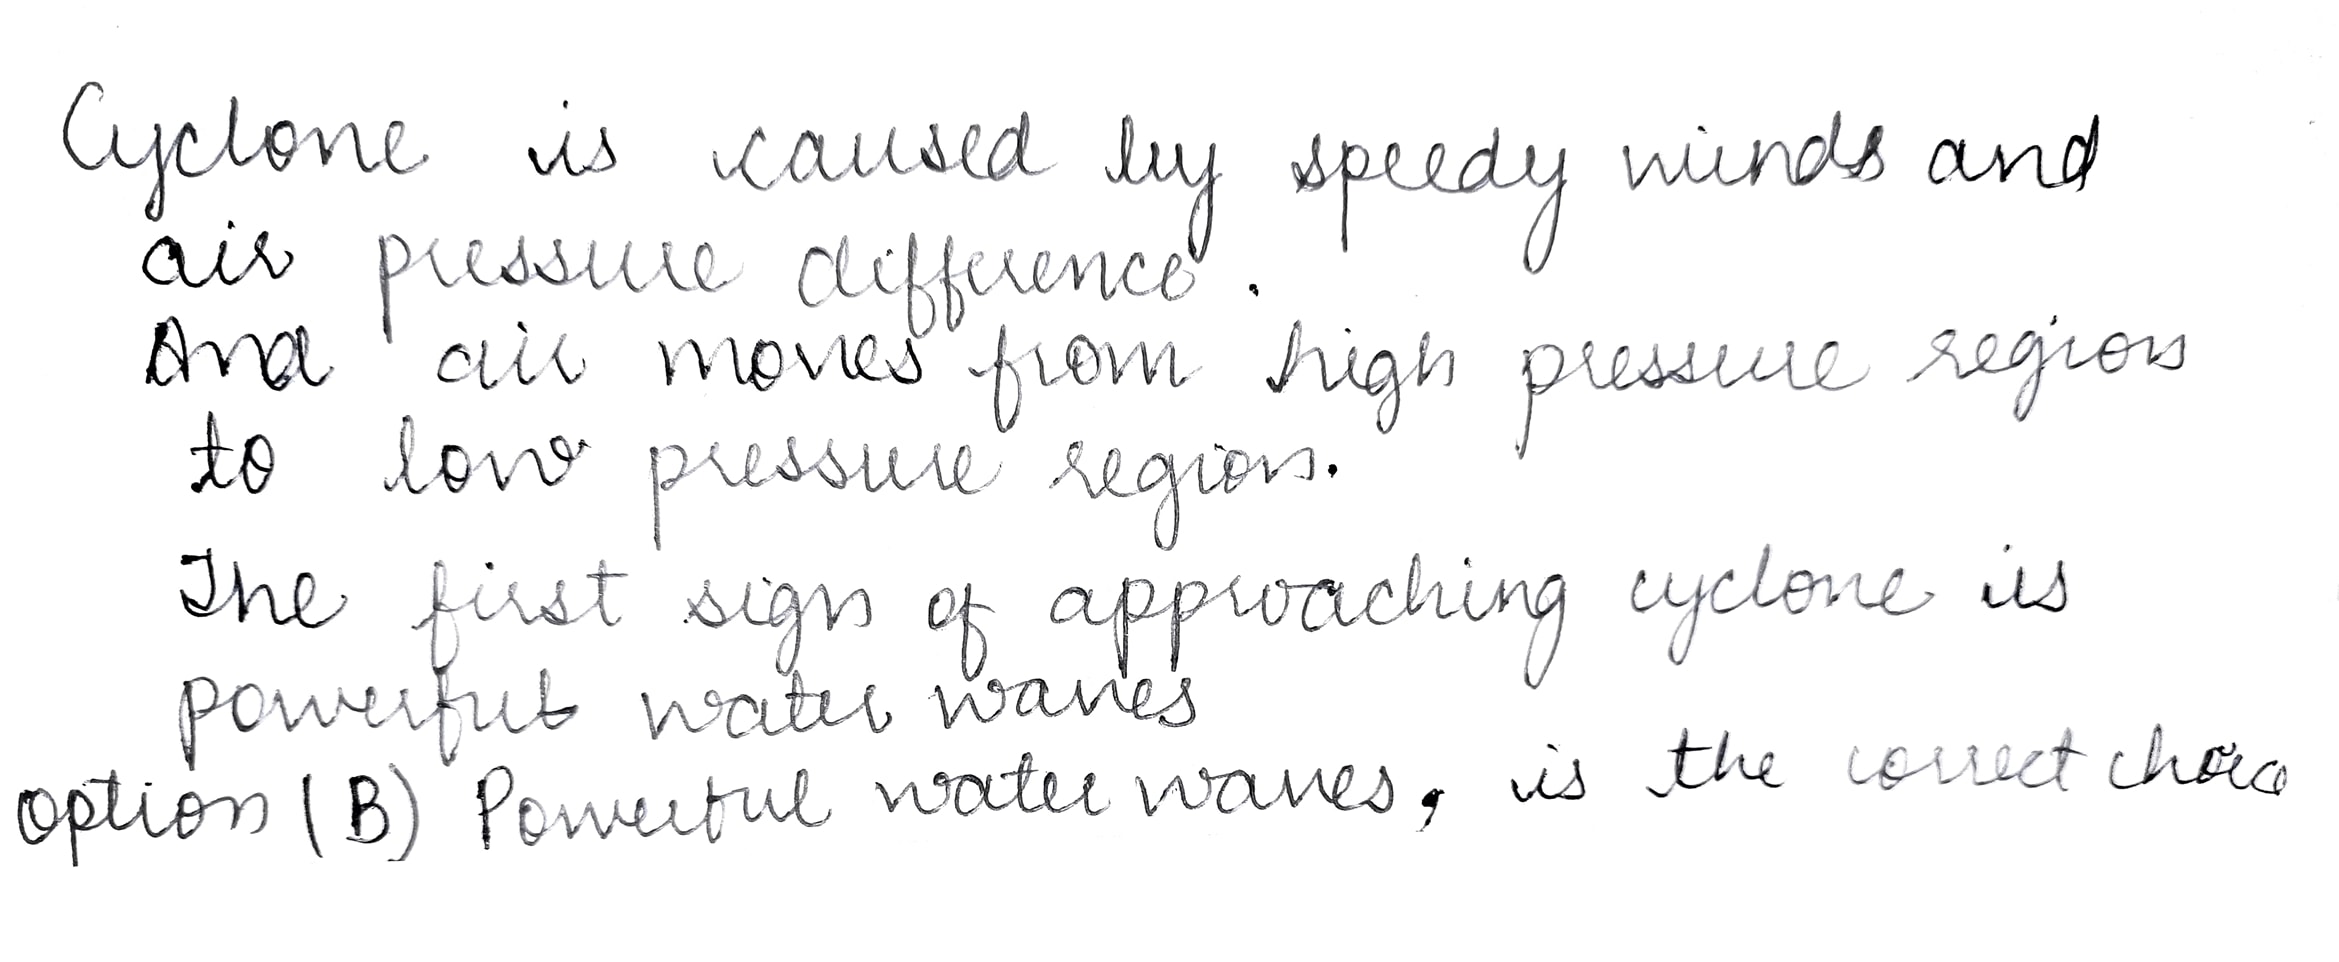 Cyclone is caused by speedy winds and
air pressure difference.
And air moves from high pressure region
to low pressure region.
The first sign of approaching cyclone is
powerful water waves
option (B) Powerful water waves, is the correct choice